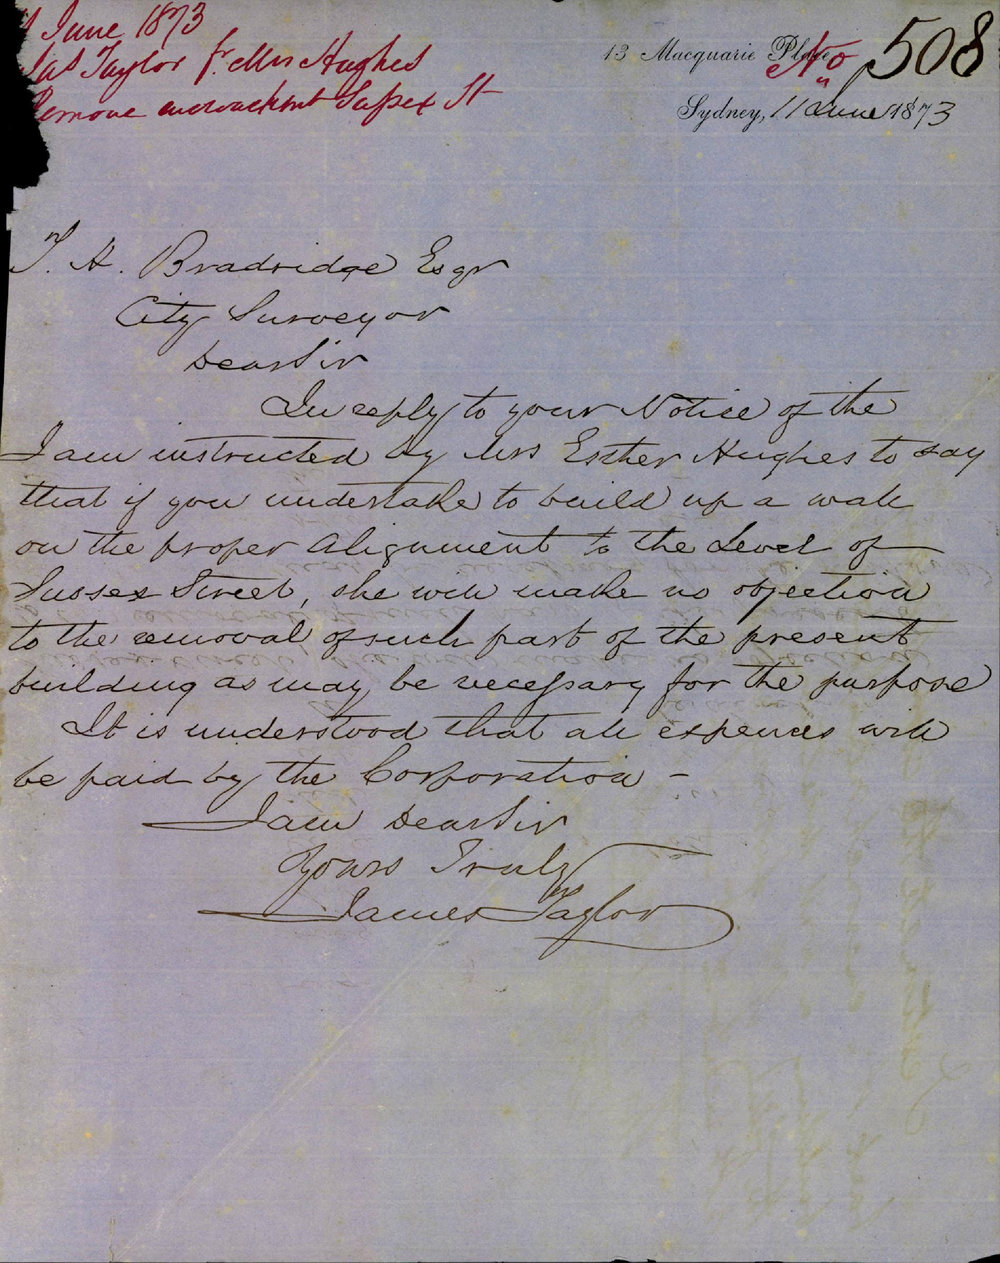 June 1873
Jas Taylor fr. Mrs Hughes
Remove encroachmt Sussex St
13 Macquarie Place
No 508
Sydney, 11 June 1873
T. H. Bradridge Esqr
City Surveyor
Dear Sir
In reply to your Notice of the
I am instructed by Mrs Esther Hughes to say
that if you undertake to build up a wall
on the proper Alignment to the Level of
Sussex Street, she will make no objection
to the removal of such part of the present
building as may be necessary for the purpose
It is understood that all expences will
be paid by the Corporation -
I am Dear Sir
Yours Truly
James Taylor